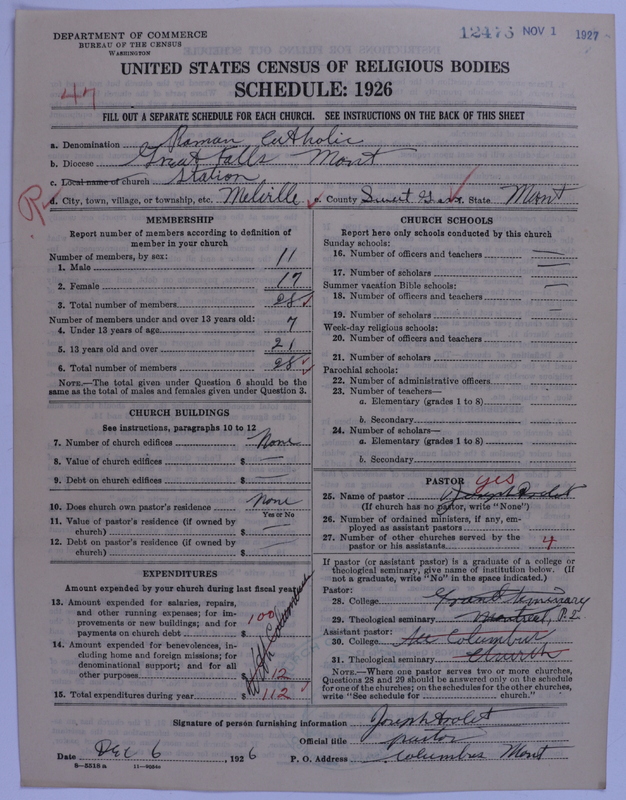 DEPARTMENT OF COMMERCE
BUREAU OF THE CENSUS
WASHINGTON
12473 NOV 1 1927
UNITED STATES CENSUS OF RELIGIOUS BODIES
SCHEDULE: 1926
47
FILL OUT A SEPARATE SCHEDULE FOR EACH CHURCH. SEE INSTRUCTIONS ON THE BACK OF THIS SHEET
a. Denomination Roman Catholic
b. Diocese Great Falls Mont
c. Local name of church Station
R
d. City, town, village, or township, etc. Melville e. County Sweet Grass State Mont
MEMBERSHIP
Report number of members according to definition of
member in your church
Number of members, by sex:
1. Male 11
2. Female 17
3. Total number of members 28
Number of members under and over 13 years old:
4. Under 13 years of age 7
5. 13 years old and over 21
6. Total number of members 28
NOTE.—The total given under Question 6 should be the
same as the total of males and females given under Question 3.
CHURCH BUILDINGS
See instructions, paragraphs 10 to 12
7. Number of church edifices None
8. Value of church edifices $ —
9. Debt on church edifices $ —
10. Does church own pastor's residence None
Yes or No
11. Value of pastor's residence (if owned by
church) $ —
12. Debt on pastor's residence (if owned by
church) $ —
EXPENDITURES
Amount expended by your church during last fiscal year
13. Amount expended for salaries, repairs,
and other running expenses; for im-
provements or new buildings; and for
payments on church debt $ 100
14. Amount expended for benevolences, in-
cluding home and foreign missions; for
denominational support; and for all
other purposes $ 12
15. Total expenditures during year $ 112
With Columbus
CHURCH SCHOOLS
Report here only schools conducted by this church
Sunday schools:
16. Number of officers and teachers —
17. Number of scholars —
Summer vacation Bible schools:
18. Number of officers and teachers —
19. Number of scholars —
Week-day religious schools:
20. Number of officers and teachers
21. Number of scholars
Parochial schools:
22. Number of administrative officers
23. Number of teachers—
a. Elementary (grades 1 to 8)
b. Secondary
24. Number of scholars—
a. Elementary (grades 1 to 8)
b. Secondary
PASTOR yes
25. Name of pastor Joseph
(If church has no pastor, write "None")
26. Number of ordained ministers, if any, em-
ployed as assistant pastors
27. Number of other churches served by the
pastor or his assistants 4
If pastor (or assistant pastor) is a graduate of a college or
theological seminary, give name of institution below. (If
not a graduate, write "No" in the space indicated.)
Pastor:
28. College Grand Seminary
29. Theological seminary Montreal, P.
Assistant pastor:
30. College See Columbus
31. Theological seminary Church
NOTE.—Where one pastor serves two or more churches,
Questions 28 and 29 should be answered only on the schedule
for one of the churches; on the schedules for the other churches,
write "See schedule for church."
Signature of person furnishing information Joseph
Official title pastor
Date Dec 6, 1926 P. O. Address Columbus Mont
8—5518 a